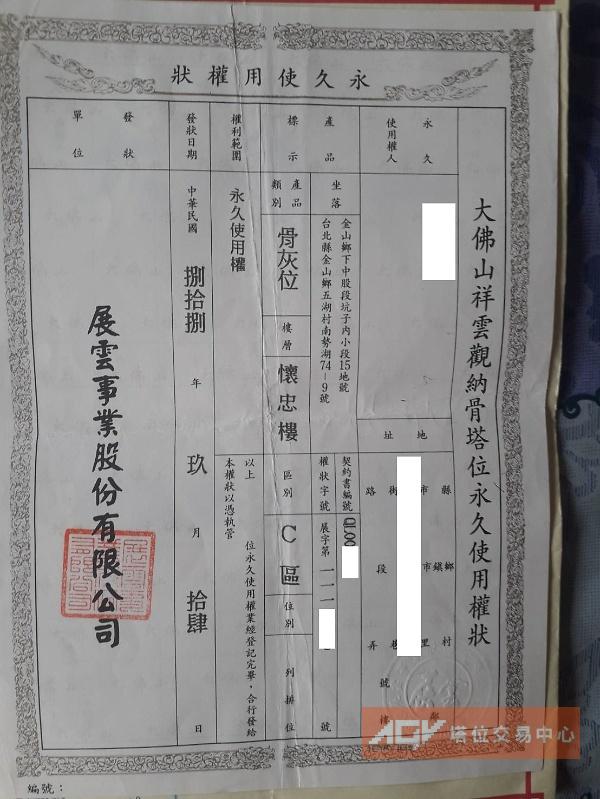 永久使用權狀
大佛山祥雲觀納骨塔位永久使用權狀
永久
使用權人
地址
縣市
鄉鎮市
村里
鄰
路街
段
巷
弄
號
樓
產品標示
坐落
金山鄉下中股段坑子內小段15地號
台北縣金山鄉五湖村南勢湖74-9號
契約書編號
權狀字號
展字第
號
產品類別
骨灰位
樓層
懷忠樓
區別
C區
位別
列排位
權利範圍
永久使用權
以上 位永久使用權業經登記完畢,合行發給
本權狀以憑執管
發狀日期
中華民國捌拾捌年玖月拾肆日
發狀單位
展雲事業股份有限公司
編號:
AGV 塔位交易中心